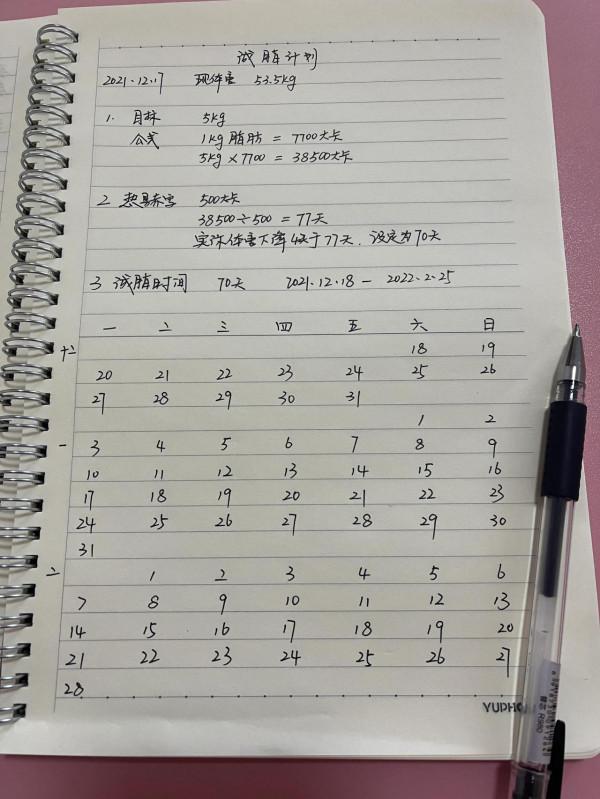 减脂计划
2021.12.17 现体重 53.5kg
1. 目标 5kg
公式 1kg脂肪 = 7700大卡
5kg×7700 = 38500大卡
2. 热量赤字 500大卡
38500÷500 = 77天
实际体重下降快于77天，设定为70天
3 减脂时间 70天 2021.12.18 — 2022.2.25
一 二 三 四 五 六 日
十二 18 19
20 21 22 23 24 25 26
27 28 29 30 31
1 2
一 3 4 5 6 7 8 9
10 11 12 13 14 15 16
17 18 19 20 21 22 23
24 25 26 27 28 29 30
31
二 1 2 3 4 5 6
7 8 9 10 11 12 13
14 15 16 17 18 19 20
21 22 23 24 25 26 27
28